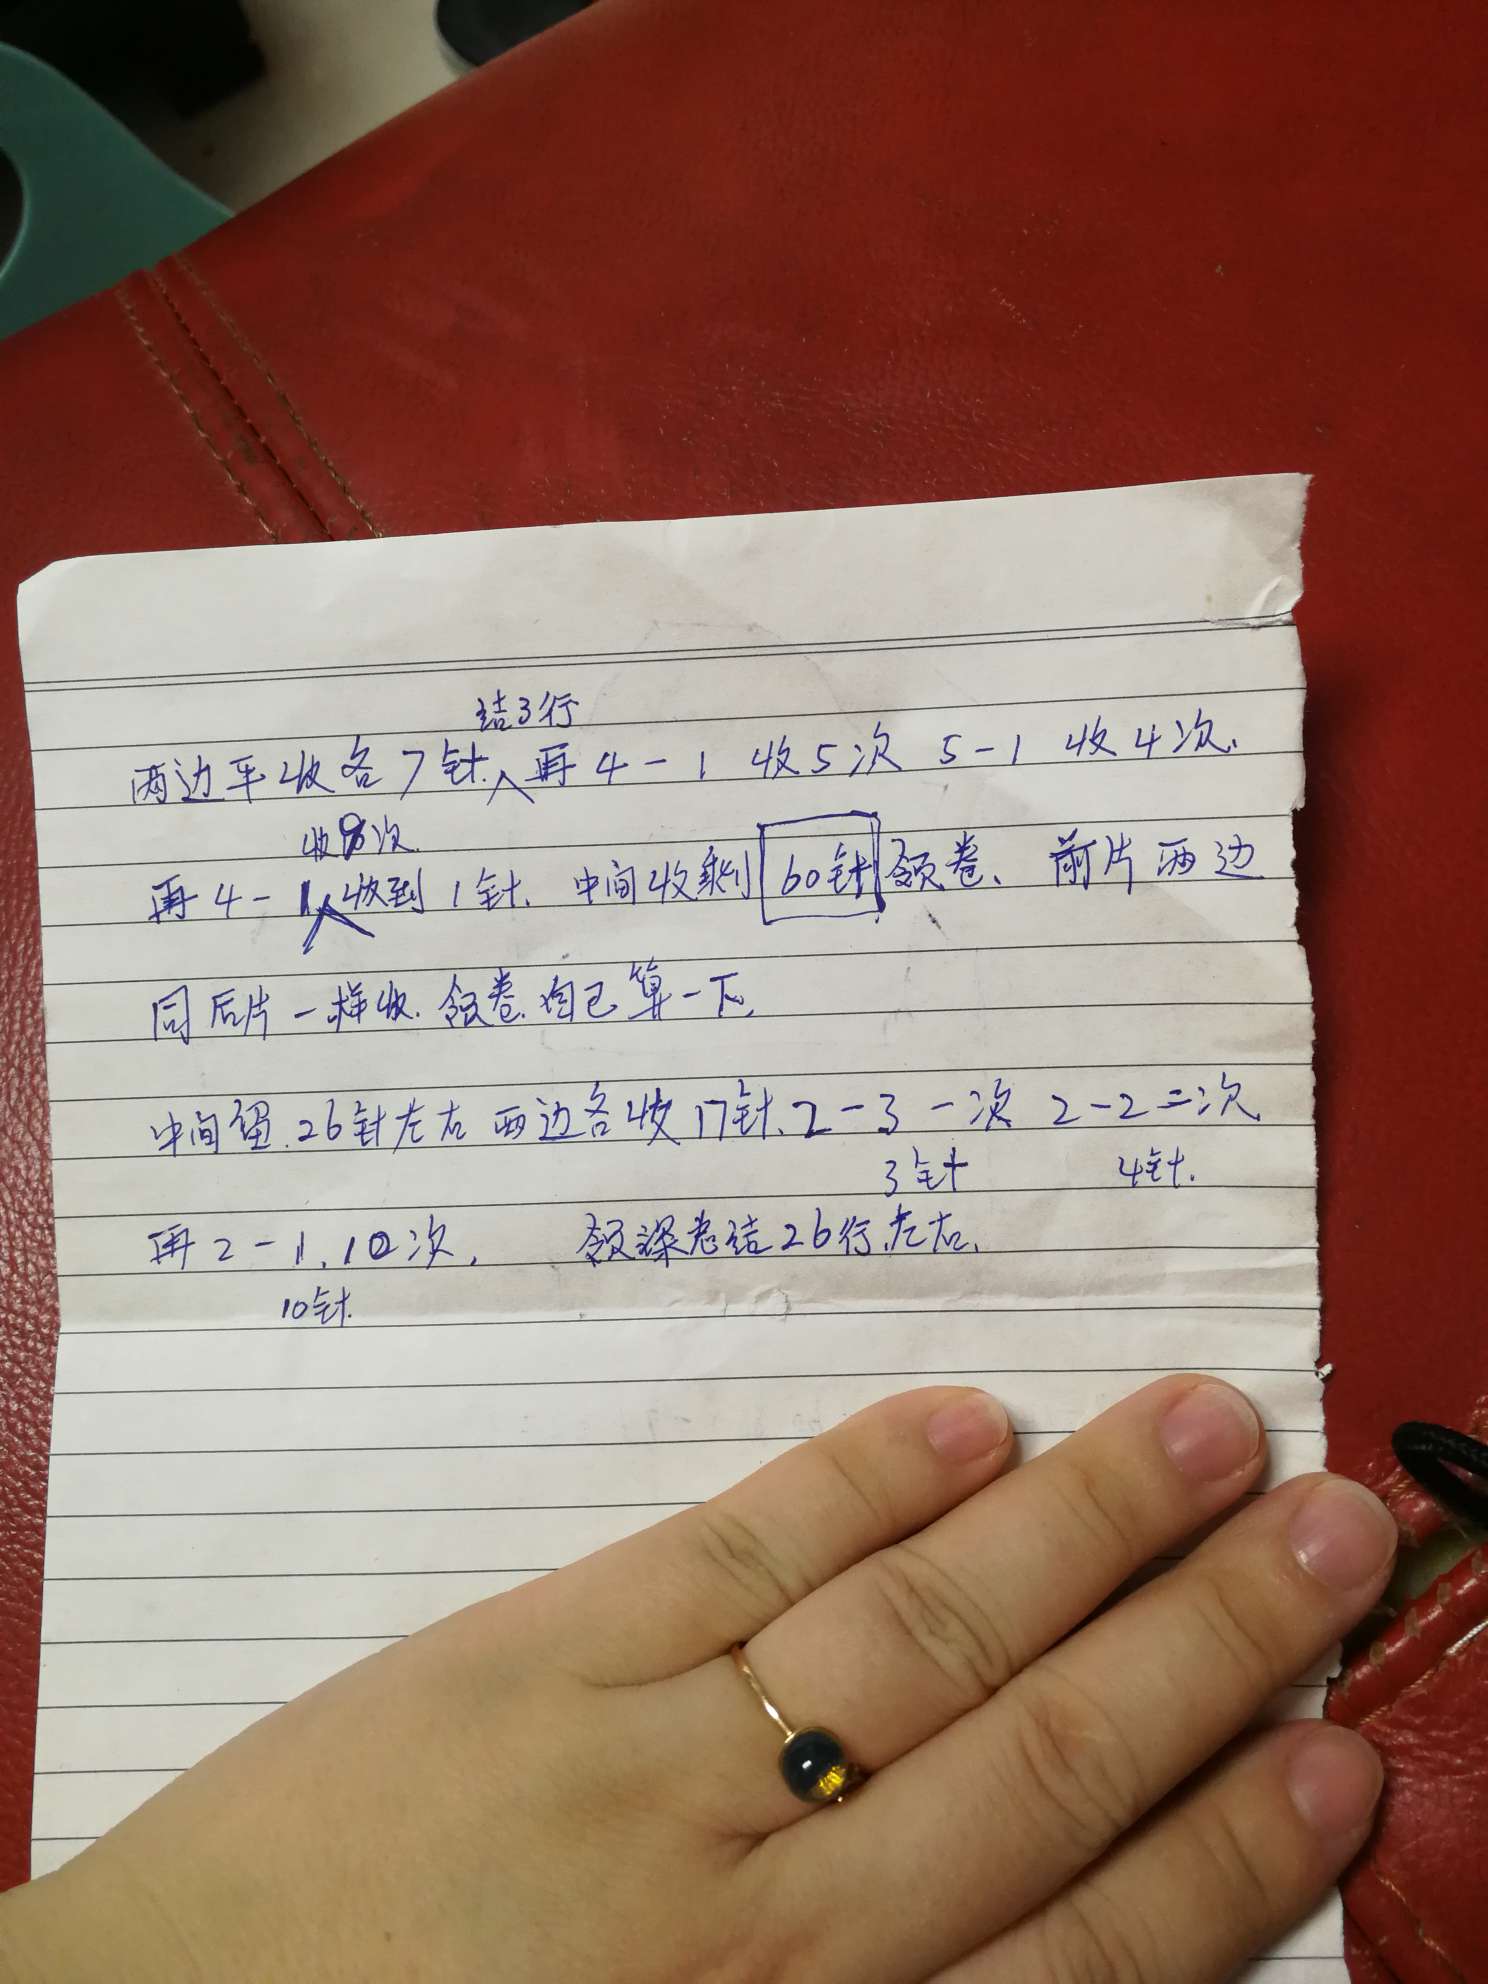 结3行
两边平收各7针、再4-1 收5次 5-1 收4次.
收9次
再4-1收到1针. 中间收剩60针领卷、前片两边
同后片一样收.领卷.自己算一下.
中间留.26针左右 两边各收17针.2-3一次 2-2二次
3针 4针.
再2-1.10次. 领深总结26行.左右.
10针.